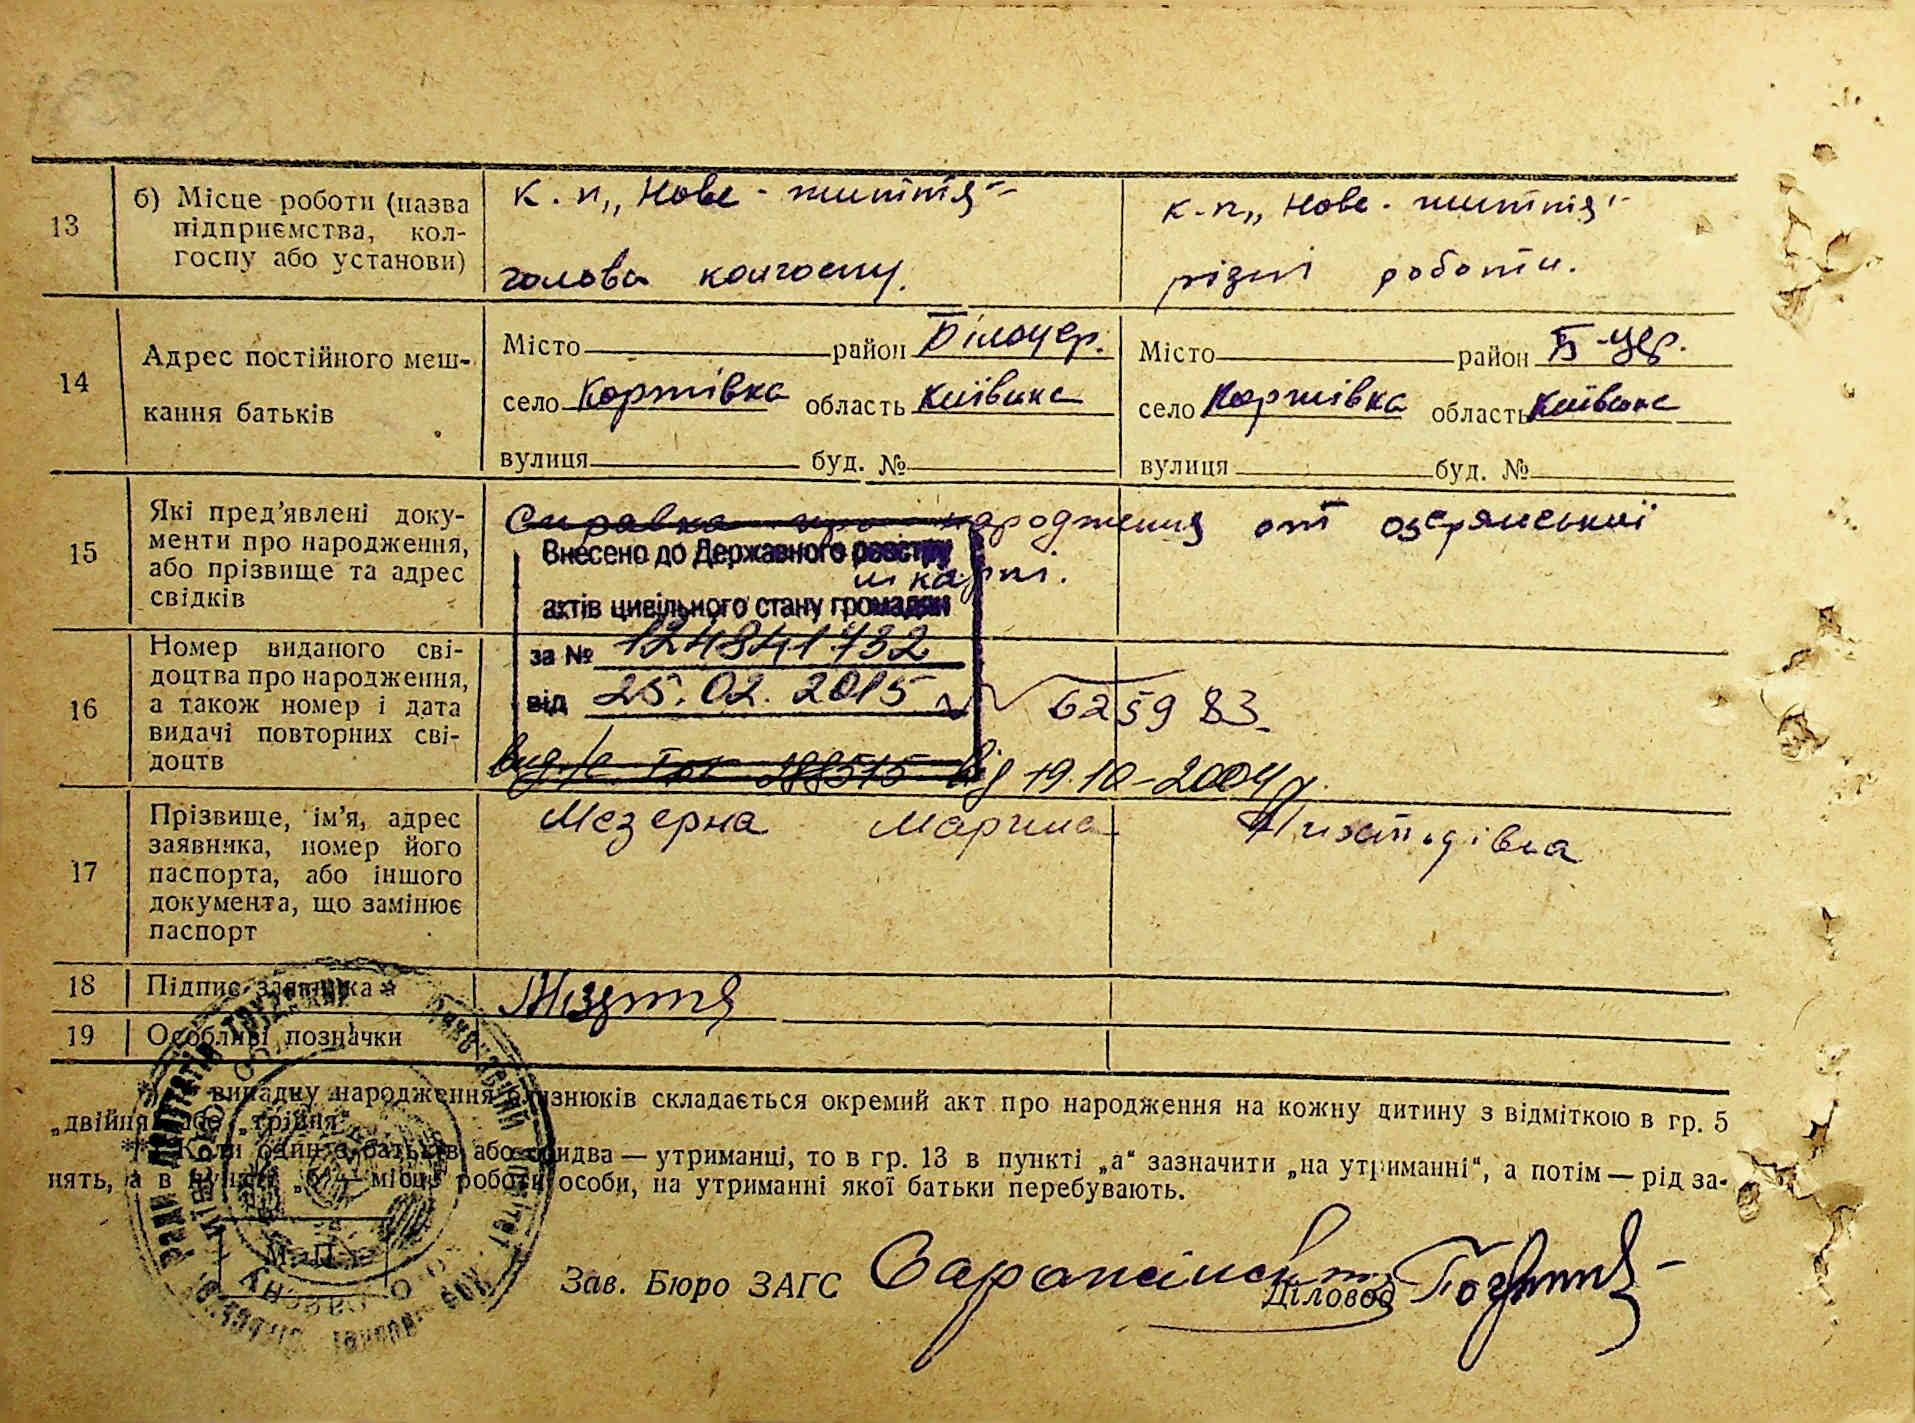 13
б) Місце роботи (назва підприємства, колгоспу або установи)
к.п „Нове-життя"
голова колгоспу.
к.п „Нове-життя"
різні роботи.
14
Адрес постійного мешкання батьків
Місто район Білоцер.
село Коржівка область Київська
вулиця буд. №
Місто район Б-Цер.
село Коржівка область Київська
вулиця буд. №
15
Які пред'явлені документи про народження, або прізвище та адрес свідків
Справка про народження от озерянської
лікарні.
Внесено до Державного реєстру
актів цивільного стану громадян
за № 124841732
від 25.02.2015
16
Номер виданого свідоцтва про народження, а також номер і дата видачі повторних свідоцтв
625983
від 19.10-2004р.
17
Прізвище, ім'я, адрес заявника, номер його паспорта, або іншого документа, що замінює паспорт
Мезерна Марина
18
Підпис заявника
19
Особливі позначки
*) У випадку народження близнюків складається окремий акт про народження на кожну дитину з відміткою в гр. 5
„двійня" або „трійня".
**) Коли один з батьків або обидва — утриманці, то в гр. 13 в пункті „а" зазначити „на утриманні", а потім — рід за-
нять, а в пункті „б" — місце роботи особи, на утриманні якої батьки перебувають.
М. П.
Зав. Бюро ЗАГС
Діловод